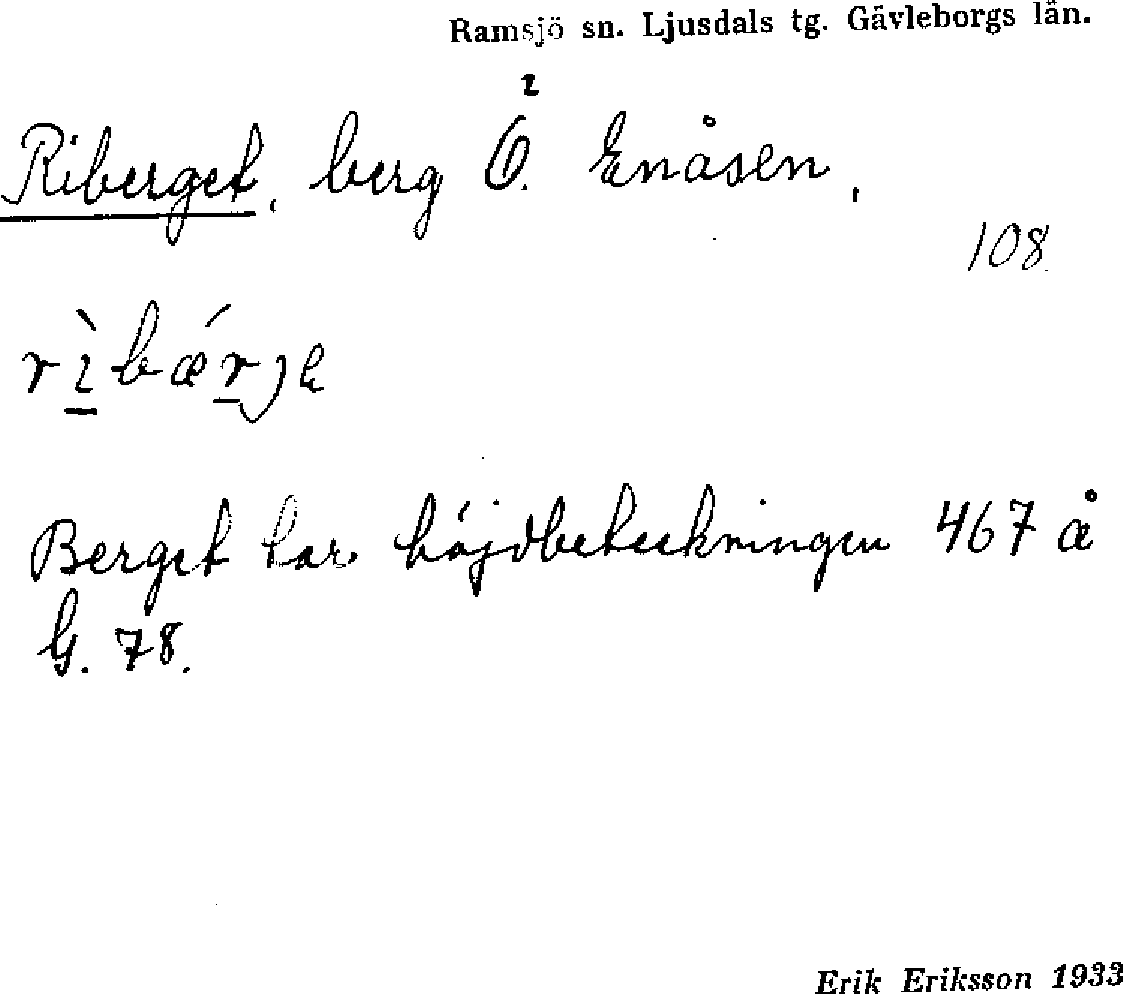 Ramsjö sn. Ljusdals tg. Gävleborgs län.
Riberget, berg Ö. Enåsen,
108.
rì̱bǽṟje
Berget har höjdbeteckningen 467 å
G. 78.
Erik Eriksson 1933